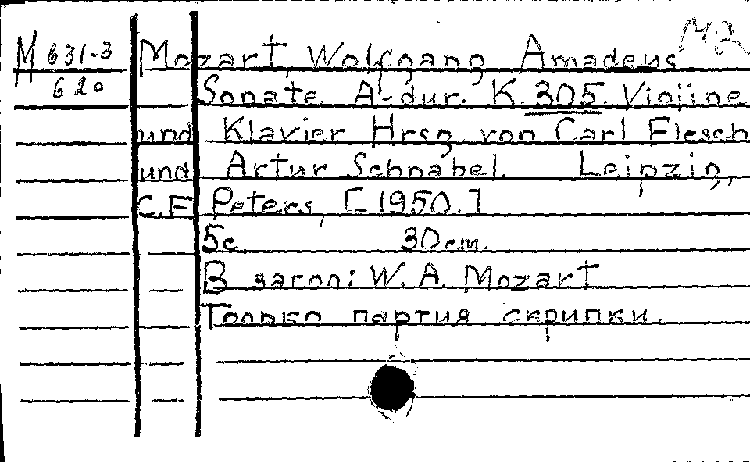 М2
М 631-3
620
Mozart, Wolfgang Amadeus
Sonate A-dur. K. 305. Violine
und Klavier Hrsg. von Carl Flesch
und Artur Schnabel. Leipzig,
C.F. Peters, [1950.]
5c 30cm.
В загол: W. A. Mozart
Только партия скрипки.